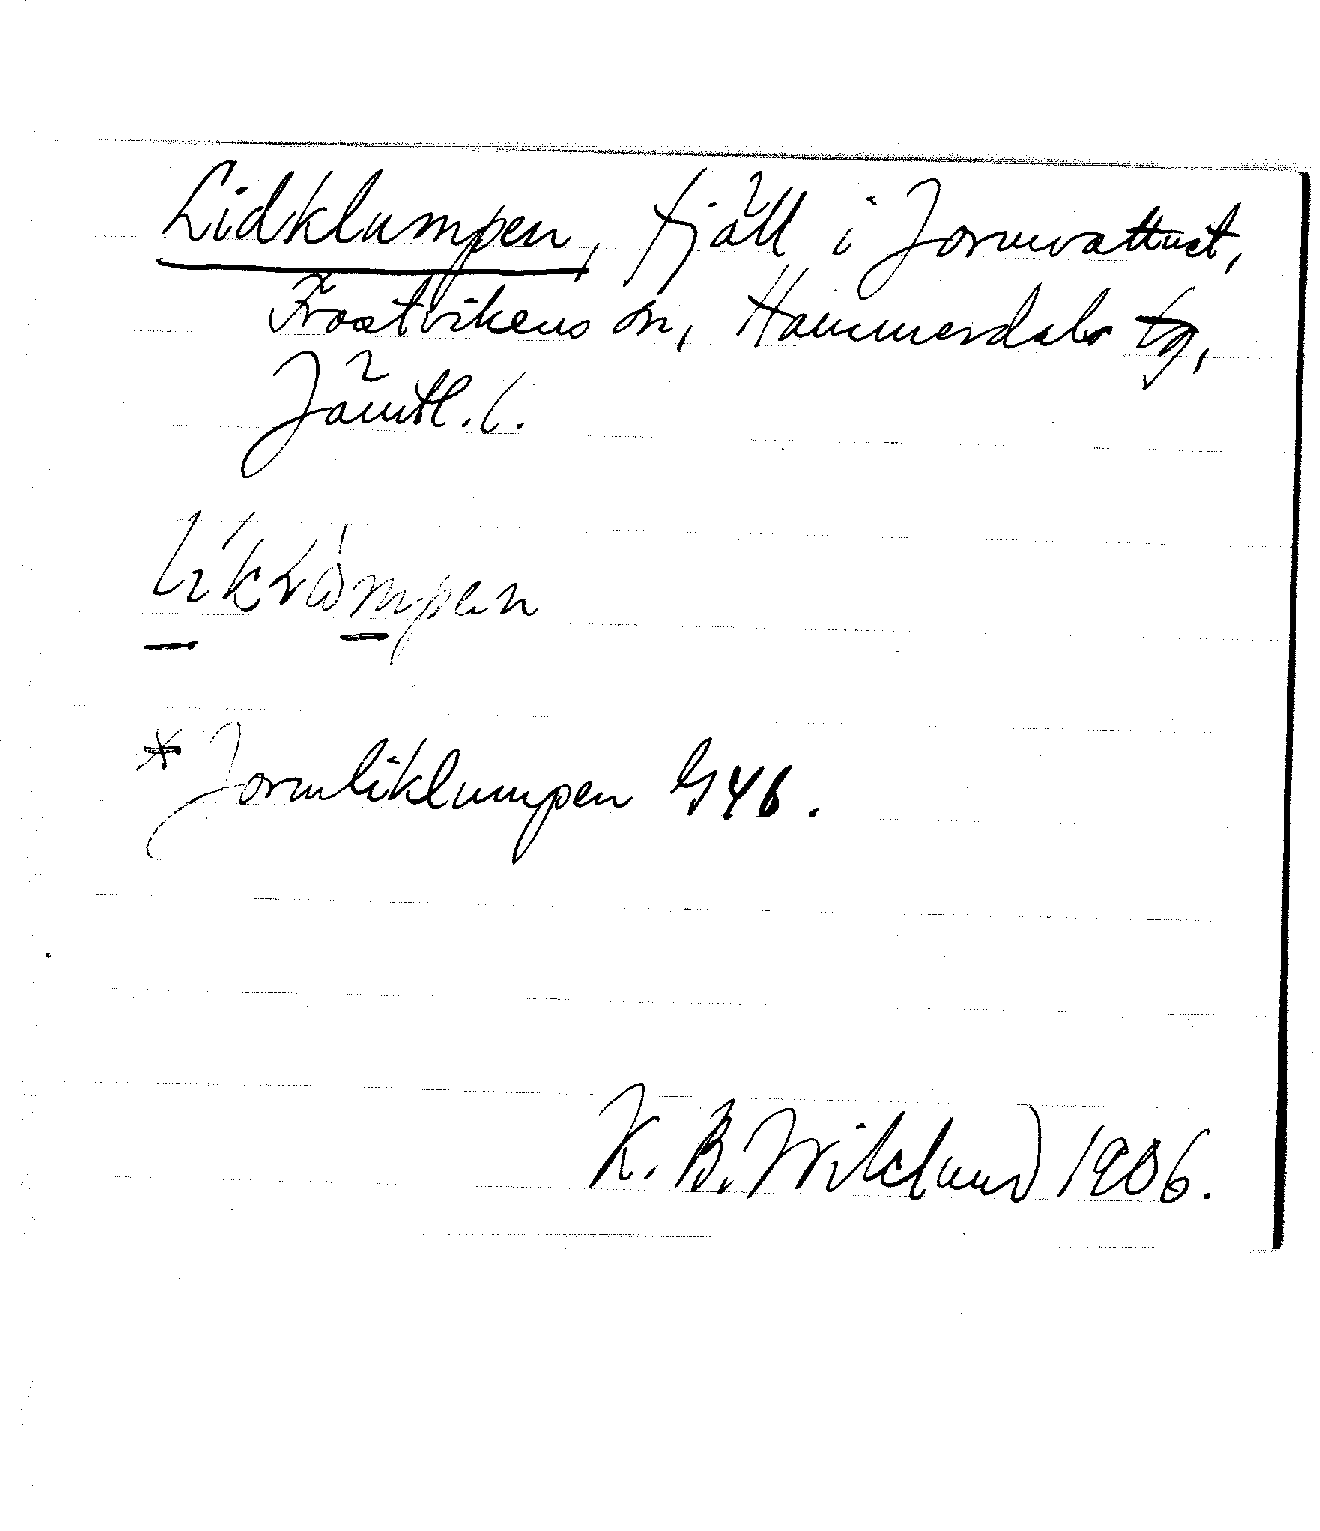 Lidklumpen, fjäll i Jormvattnet,
Frostvikens sn, Hammerdals tg,
Jämtl. l.
* Jormliklumpen G46.
K. B. Wiklund 1906.